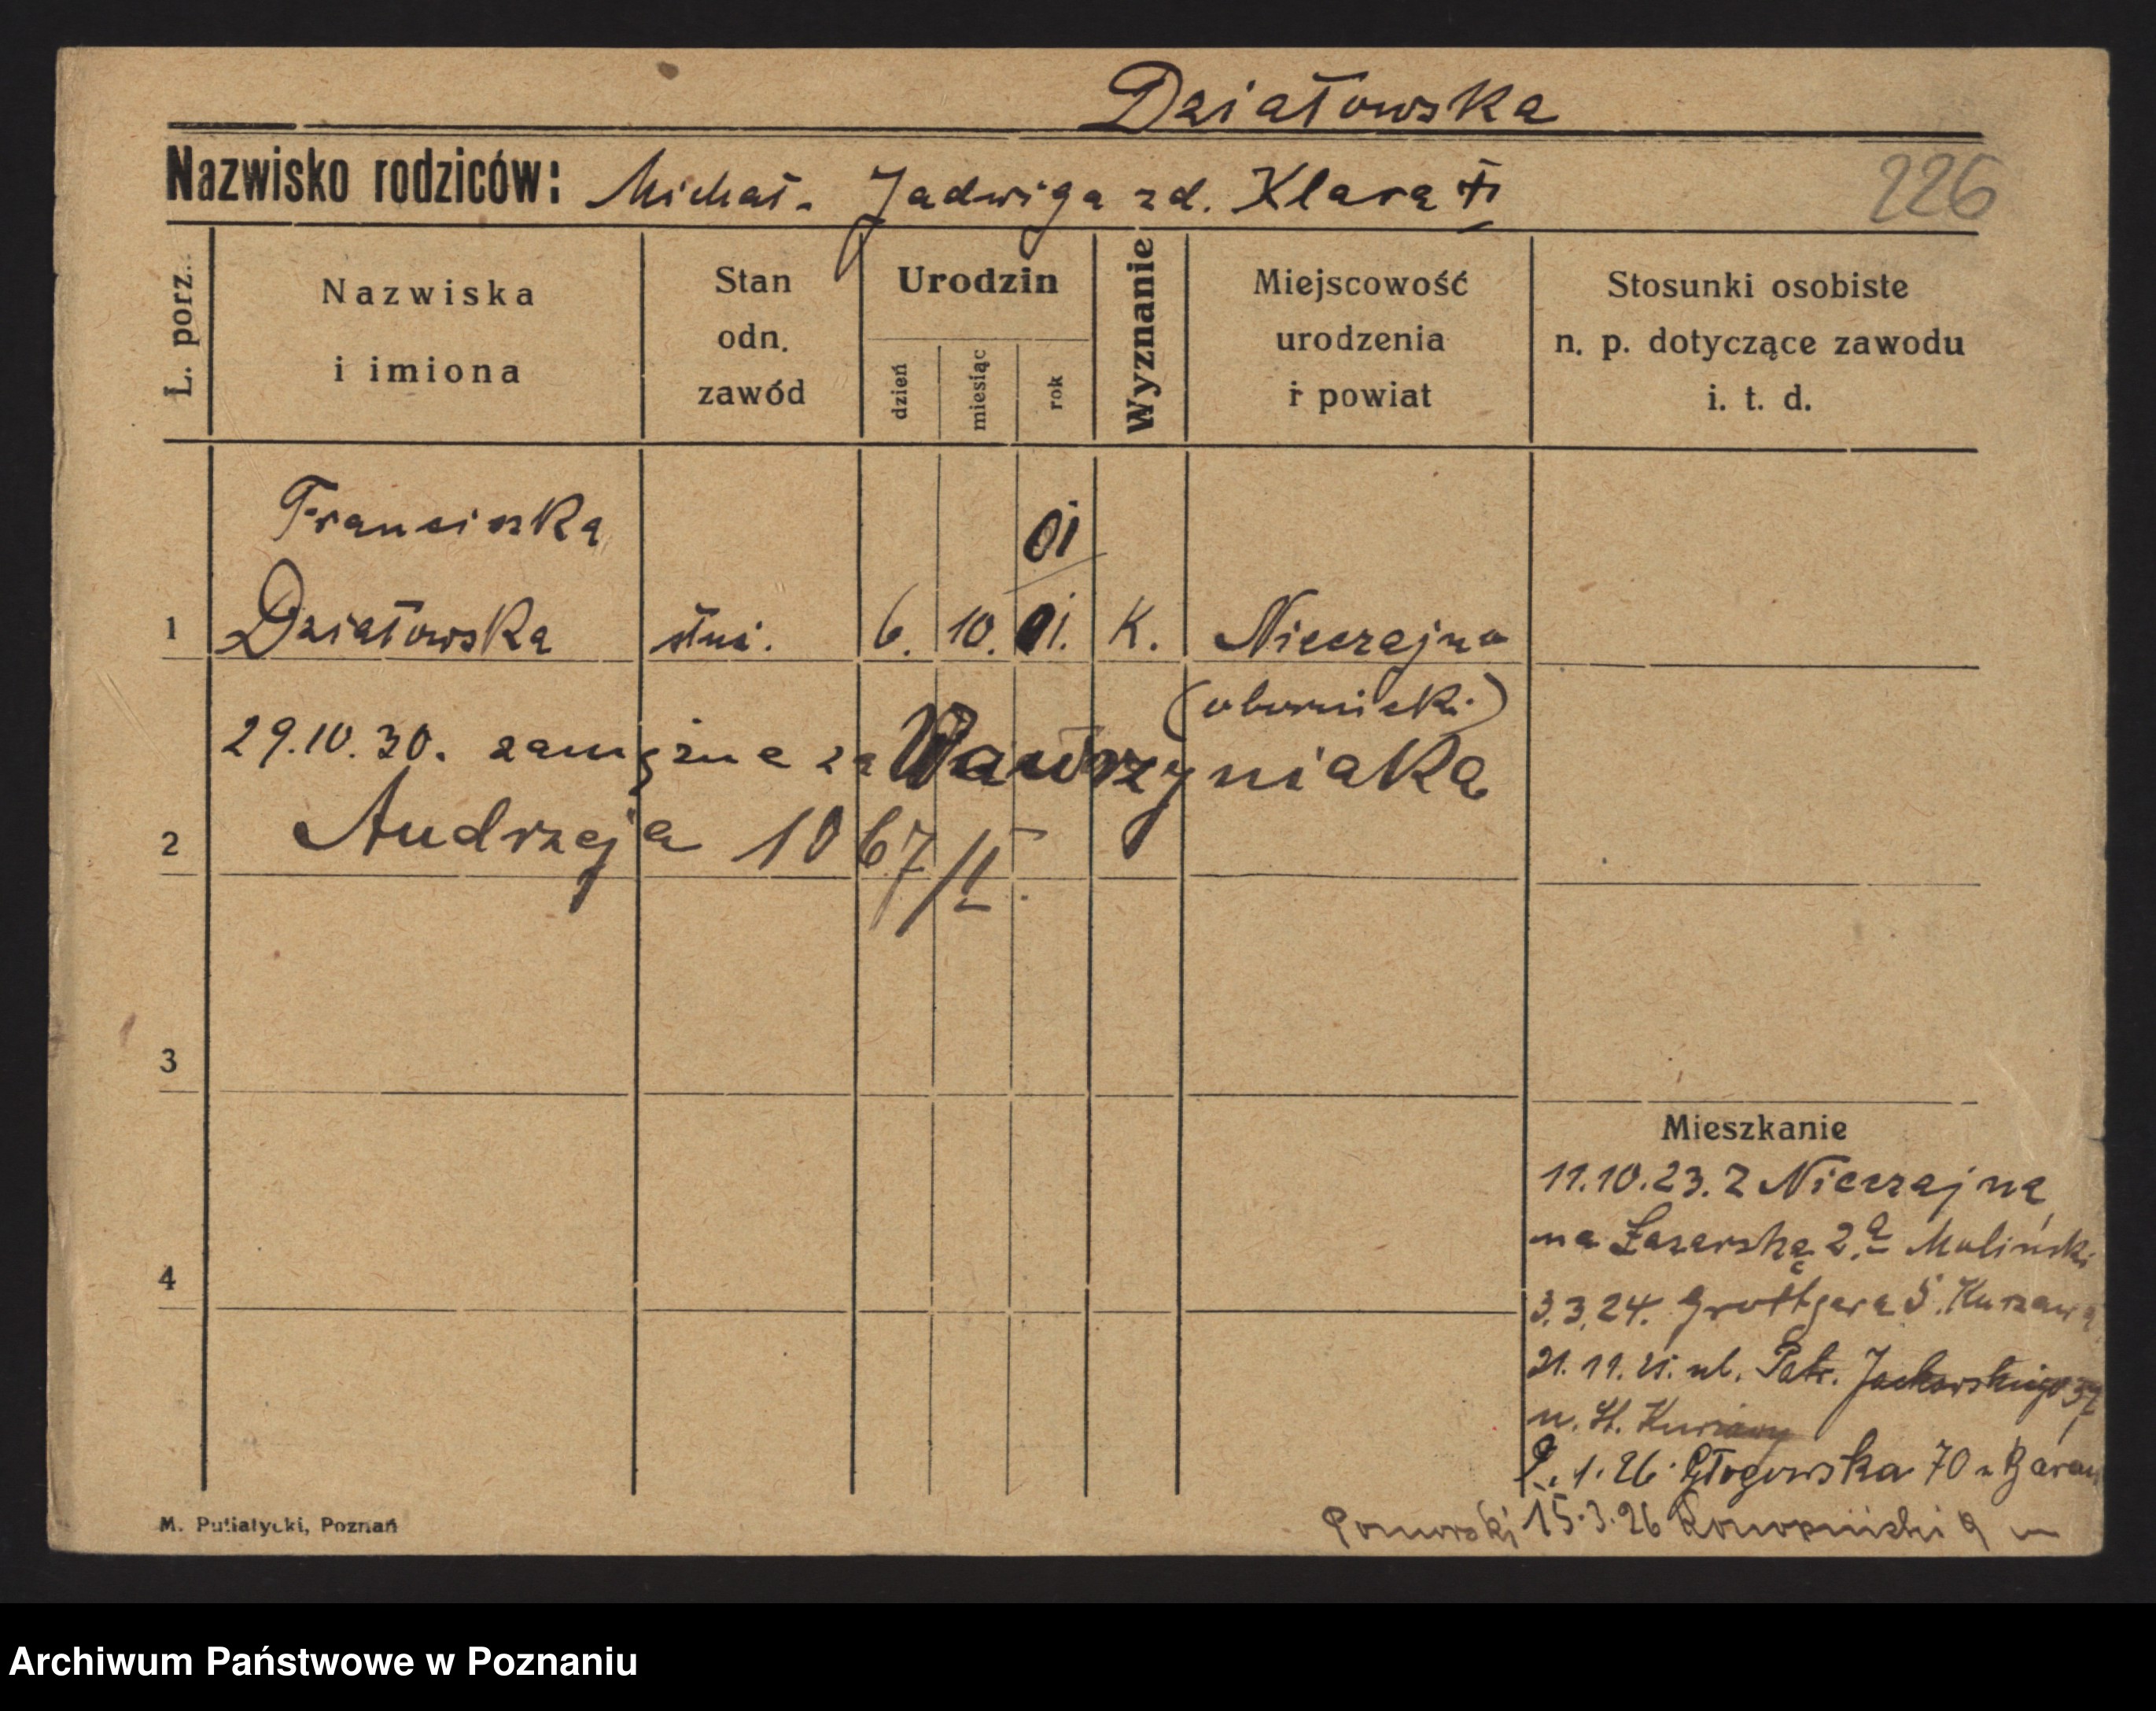 Działowska
Nazwisko rodziców: Michał - Jadwiga zd. Klara
226
L. porz.
Nazwiska
i imiona
Stan
odn.
zawód
Urodzin
dzień
miesiąc
rok
Wyznanie
Miejscowość
urodzenia
i powiat
Stosunki osobiste
n. p. dotyczące zawodu
i. t. d.
Franciszka
01
1 Działowska służ. 6. 10. 01. K. Nieczajna
(obornicki)
29.10.30. zamężna za Wawrzyniaka
2 Andrzeja 1067/II
3
4
Mieszkanie
11.10.23. Z Nieczajna
na Łazarską 2a Moliński
3.3.24. Grottgera 5. Kurzawa
21.11. ul. Patr. Jackowskiego
u. St. Kurzawy
1.26. Głogowska 70 u Baran
15.3.26 9
M. Putiatycki, Poznań
Archiwum Państwowe w Poznaniu